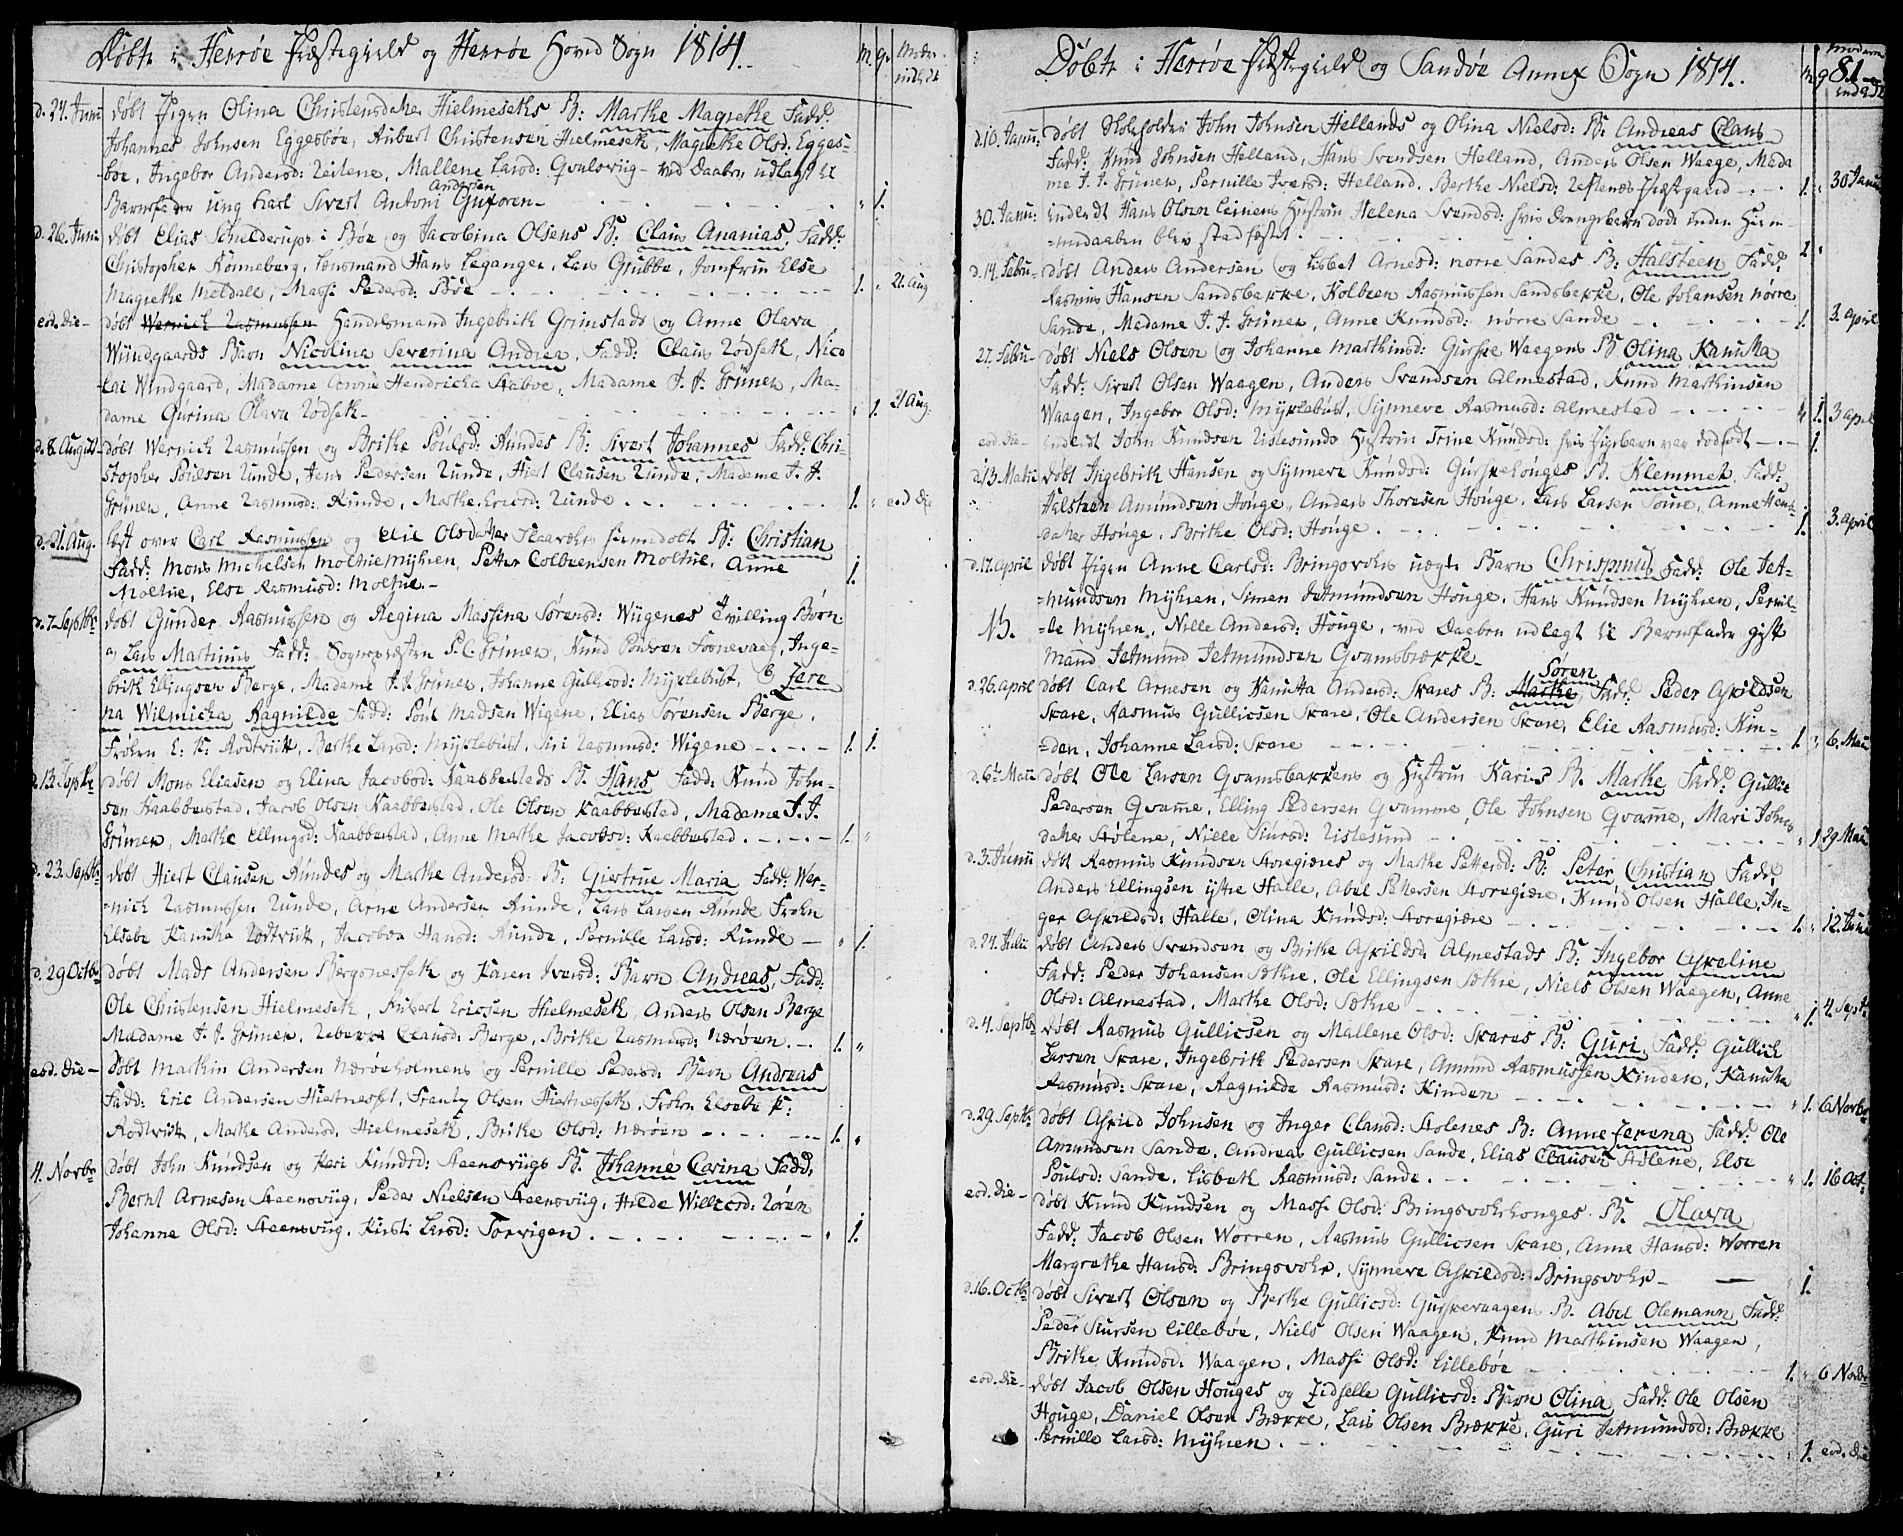 Døbte i Herrøe Præstegield og Herrøe Hoved Sogn 1814.
M. Q. Mødr. indledt
d. 24. Juni døbt Pigen Olina Christensdatter Hielmesæths B: Marthe Magrethe Fadd:
Johannes Johnsen Eggesbøe, Aubert Christensen Hielmeseth, Magrethe Olsd: Egges-
boe, Ingebor Andersd: Leitene, Mallene Larsd: Qvalsviig - ved Daaben udlagt til
Andersen
Barnefader ung karl Sivert Antoni - 1.
d. 26. Juni døbt Elias Schelderups i Bøe og Jacobina Olsens B. Claus Ananias, Fadd:
Christopher Rønneberg, Lensmand Hans Leganger, Lars Grubbe, Jomfrue Else
Magrethe Meldall, Massi Pedersd: Bøe 1. 21. Aug
eod. die - døbt Wernich Rasmussen Handelsmand Ingebrith Grimstads og Anne Olava
Wündgaards Barn Nicolina Severina Andrea, Fadd: Claus Rødseth, Nico
lai Wündgaard, Madame Anne Hendricka Staboe, Madame J. J. Grüner, Ma-
dame Gurina Olava Rødseth - 1. 21 Aug.
d. 8. August døbt Wernich Rasmussen og Brithe Poulsd: Rundes B: Sivert Johannes Fadd: Chri-
stopher Poulsen Runde, Jens Pedersen Runde, Hiert Clausen Runde, Madame J. J.
Grüner, Anne Rasmusd: Runde, Marthe Ericsd: Runde 1. eod die
d. 21. Aug. læst over Carl Rasmussen og Elie Olsdatter hiemedøbt B: Christian
Fadd: Mons Michelsen Moltue Myhren, Petter Colbeensen Moltue, Anne
Moltue, Else Rasmusd: Moltue - 1.
d. 7. Septbr døbt Gunder Rasmussen og Regina Massina Sørensd: Wiigenes Tvilling Børn
a) Lars Martinus Fadd: Sognepræsten P. C. Grüner, Knud Poulsen Fosnevaag, Inge-
brith Ellingsen Berge, Madame J. J. Grüner, Johanne Gullicsd: Myklebust, b) Sere
na Wilmicha Ragnilde Fadd: Poul Madsen Wigene, Elias Sørensen Berge,
Frøken E: K: Rodtvitt, Berthe Larsd: Myklebust, Siri Rasmusd: Wigene - 1. 1.
d. 13. Septbr døbt Mons Eliasen og Elina Jacobsd: Kaabbestads B. Hans Fadd: Knud John-
sen Kaabbestad, Jacob Olsen Kaabbestad, Ole Olsen Kaabbestad, Madame J. J.
Grüner, Marthe Ellingsd: Kaabbestad, Anne Marthe Jacobsd: Kaabbestad 1.
d. 23. Septbr døbt Hiert Clausen Rundes og Marthe Andersd: B: Giertrue Maria Fadd: Wer-
nich Rasmussen Runde, Arne Andersen Runde, Lars Larsen Runde Frøken
Elsebe Kanutha Rodtvitt, Jacobea Hansd: Runde, Pernille Larsd: Runde - 1.
d. 29 Octbr døbt Mads Andersen Bergeneseth og Karen Iversd: Barn Andreas, Fadd:
Ole Christensen Hielmeseth, Aubert Ericsen Hielmeseth, Anders Olsen Berge
Madame J. J. Grüner, Rebekka Clausd: Berge, Brithe Rasmusd: Nærøen 1.
eod. die - døbt Marthin Andersen Nærøeholmens og Pernille Pedersd: Barn Andreas
Fadd: Eric Andersen Hiertneset, Frantz Olsen Hiertneseth, Frøken Elsebe K:
Rodtvitt, Marthe Andersd. Hielmeseth, Brithe Olsd: Nærøen 1.
4. Novbr døbt John Knudsen og Kari Knudsd: Steensviigs B. Johanne Carina Fadd:
Bernt Arnesen Steensviig, Peder Nielsen Steensviig, Hilde Willicsd: Røren
Johanne Olsd: Steensviig, Kirsti Larsd: Torvigen 1.

Døbte i Herrøe Præstegield og Sandøe Annex Sogn 1814.
M. Q. 81 Moderen indledt
d. 10. Janu: døbt Skoleholder John Johnsen Hellands og Olina Nielsd: B. Andreas Claus
Fadd: Knud Johnsen Helland, Hans Svendsen Helland, Anders Olsen Waage, Mada
me J. J. Grüner, Pernille Iversd: Helland, Berthe Nielsd: Præstgaard 1. 30 Janu
30. Janu: indledt Hans Olsen Leinens Hustrue Helena Svendsd: hvis drengebarn døde inden Hiem-
medaaben blev stadfæstet 1.
d. 14. Febru- døbt Anders Andersen og Lisbet Arnesd: nørre Sandes B: Halsteen Fadd:
Rasmus Hansen Sandsbakke, Kolbeen Rasmussen Sandsbakke, Ole Johansen nørre
Sande, Madame J. J. Grüner, Anne Knudsd: nørre Sande 1. 3. April
27. Febru- døbt Niels Olsen og Johanne Marthinsd: Gurske Waagens B Olina Kanutha
Fadd: Sivert Olsen Waagen, Anders Svendsen Almestad, Knud Marthinsen
Waagen, Ingebor Olsd: Myklebust, Synneve Rasmusd: Almestad 1. 3 April
eod die- indledt John Knudsen Lislesunds Hustrue Trine Knudsd: hvis Pigebarn var dødfødt 1.
d. 13. Martii døbt Ingebrith Hansen og Synneve Knudsd: Gurskehouges B. Klemmet Fadd:
Halsteen Amundsen Houge, Anders Thoresen Houge, Lars Larsen Toune, Anne Hens
datter Houge, Brithe Olsd: Houge 1. 3. April
d. 17. April døbt Pigen Anne Carlsd: Bringsvohrs uægte Barn Chrispinus Fadd: Ole Jet-
mundsen Myhren, Simen Jetmundsen Houge, Hans Knudsen Myhren, Pernil-
NB. le Myhren, Nille Andersd: Houge, ved Daaben udlagt til Barnefader gift
Mand Jetmund Jetmundsen Qvamsbække -
Søren
d. 26. April døbt Carl Arnesen og Kanutta Andersd: Skares B: Marthe Fadd: Peder Askildsen
Skare, Rasmus Gullicsen Skare, Ole Andersen Skare, Elie Rasmusd: Kin-
den, Johanne Larsd: Skare 1. 6. Maii
d. 6te Maii døbt Ole Larsen Qvamsbakkens og Hustrue Karis B. Marthe Fadd: Gullic
Pedersen Qvame, Elling Pedersen Qvamme, Ole Johnsen Qvame, Mari Johns
datter Stølene, Nille Siursd: Lislesund 1. 29. Maii
d. 3. Junii døbt Rasmus Knudsen Storegieres og Marthe Pettersd: B: Peter Christian Fadd:
Anders Ellingsen ystre Halle, Abel Petersen Storegiere, Knud Olsen Halle, In-
ger Askildsd: Halle, Olina Knudsd: Storegiere 1. 12. Juni
d. 24. Julii døbt Anders Svendsen og Brithe Askildsd: Almestads B: Ingebor Askeline
Fadd: Peder Johansen Sætre, Ole Ellingsen Sætre, Niels Olsen Waagen, Anne
Olsd: Almestad, Marthe Olsd: Sætre 1. 4. Septbr
d. 4. Septbr døbt Rasmus Gullicsen og Mallene Olsd: Skares B: Guri, Fadd: Gullich
Larsen Skare, Ingebrith Pedersen Skare, Amund Rasmussen Kinden, Kanutha
Rasmusd: Skare, Ragnilde Rasmusd: Kinden 1. 6 Novbr
d. 29. Septbr døbt Askild Johnsen og Inger Clausd: Stølenes B: Anne Serena Fadd: Ole
Amundsen Sande, Andreas Gullicsen Sande, Elias Clausen Stølene, Else
Poulsd: Sande, Lisbeth Rasmusd: Sande 1. 16 Oct:
eod. die - døbt Knud Knudsen og Massi Olsd: Bringsvohrhouges B. Olava
Fadd: Jacob Olsen Worren, Rasmus Gullicsen Skare, Anne Hansd: Worren
Margrethe Hansd: Bringsvohr, Synneve Askildsd: Bringsvohr - 1.
d. 16. Octbr døbt Sivert Olsen og Berthe Gullicsd: Gurskevaagen B. Abel Olemann Fadd:
Peder Siursen Lillebøe, Niels Olsen Waagen, Knud Marthinsen Waagen,
Brithe Knudsd: Waagen, Massi Olsd: Lillebøe 1. 6 Novbr
eod. die - døbt Jacob Olsen Houges og Zidselle Gullicsd: Barn Olina Fadd: Ole Olsen
Houge, Daniel Olsen Brække, Lars Olsen Brække, Guri Jetmundsd: Brække
Pernille Larsd: Myhren 1. eod. die